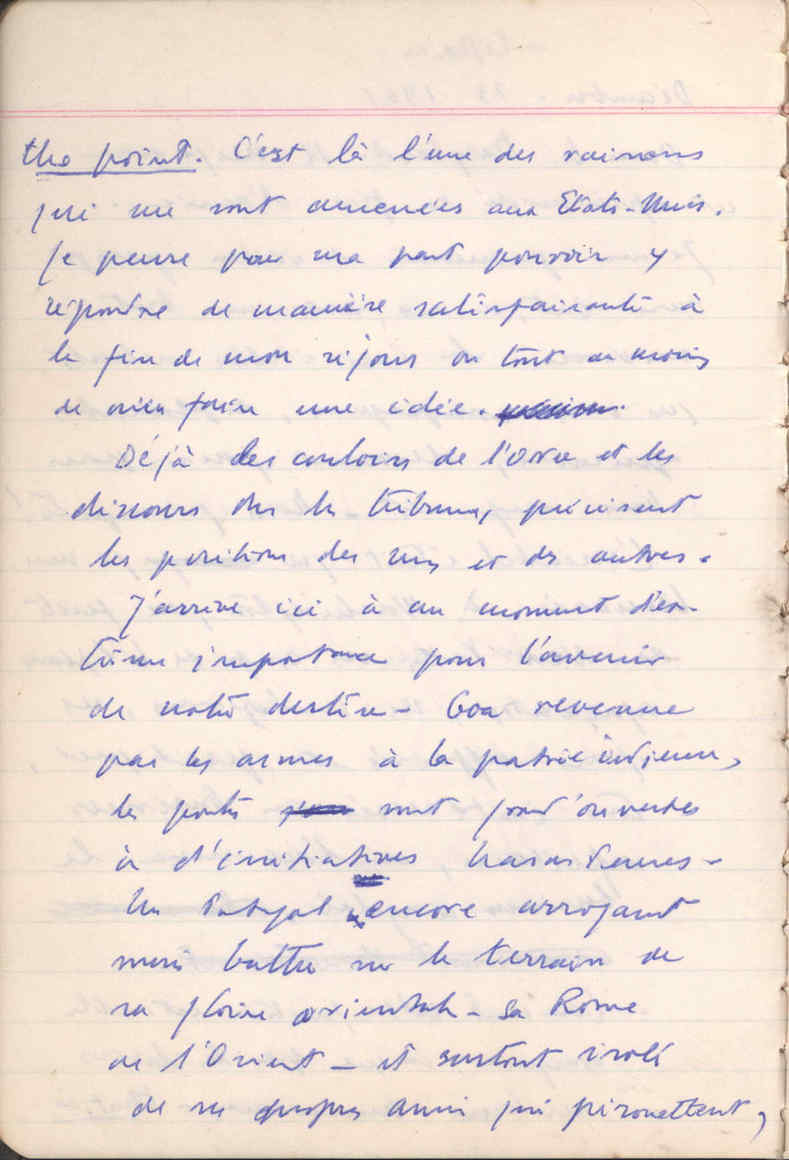 the point. C'est là l'une des raisons
qui me sont amenées aux Etats-Unis.
Je pense pour ma part pouvoir y
répondre de manière satisfaisante à
la fin de mon séjour ou tout au moins
de m'en faire une idée.
Déjà des couloirs de l'ONU et les
discours du la tribune, précisent
les positions des uns et des autres.
J'arrive ici à un moment d'ex-
trême importance pour l'avenir
de notre destin - Goa revenue
par les armes à la patrie indienne,
les portes sont ouvertes
à d'initiatives hasardeuses -
Un Portugal encore arrogant
mais battu sur le terrain de
sa gloire orientale - sa Rome
de l'Orient - et surtout isolé
de ses propres amis qui pirouettent,